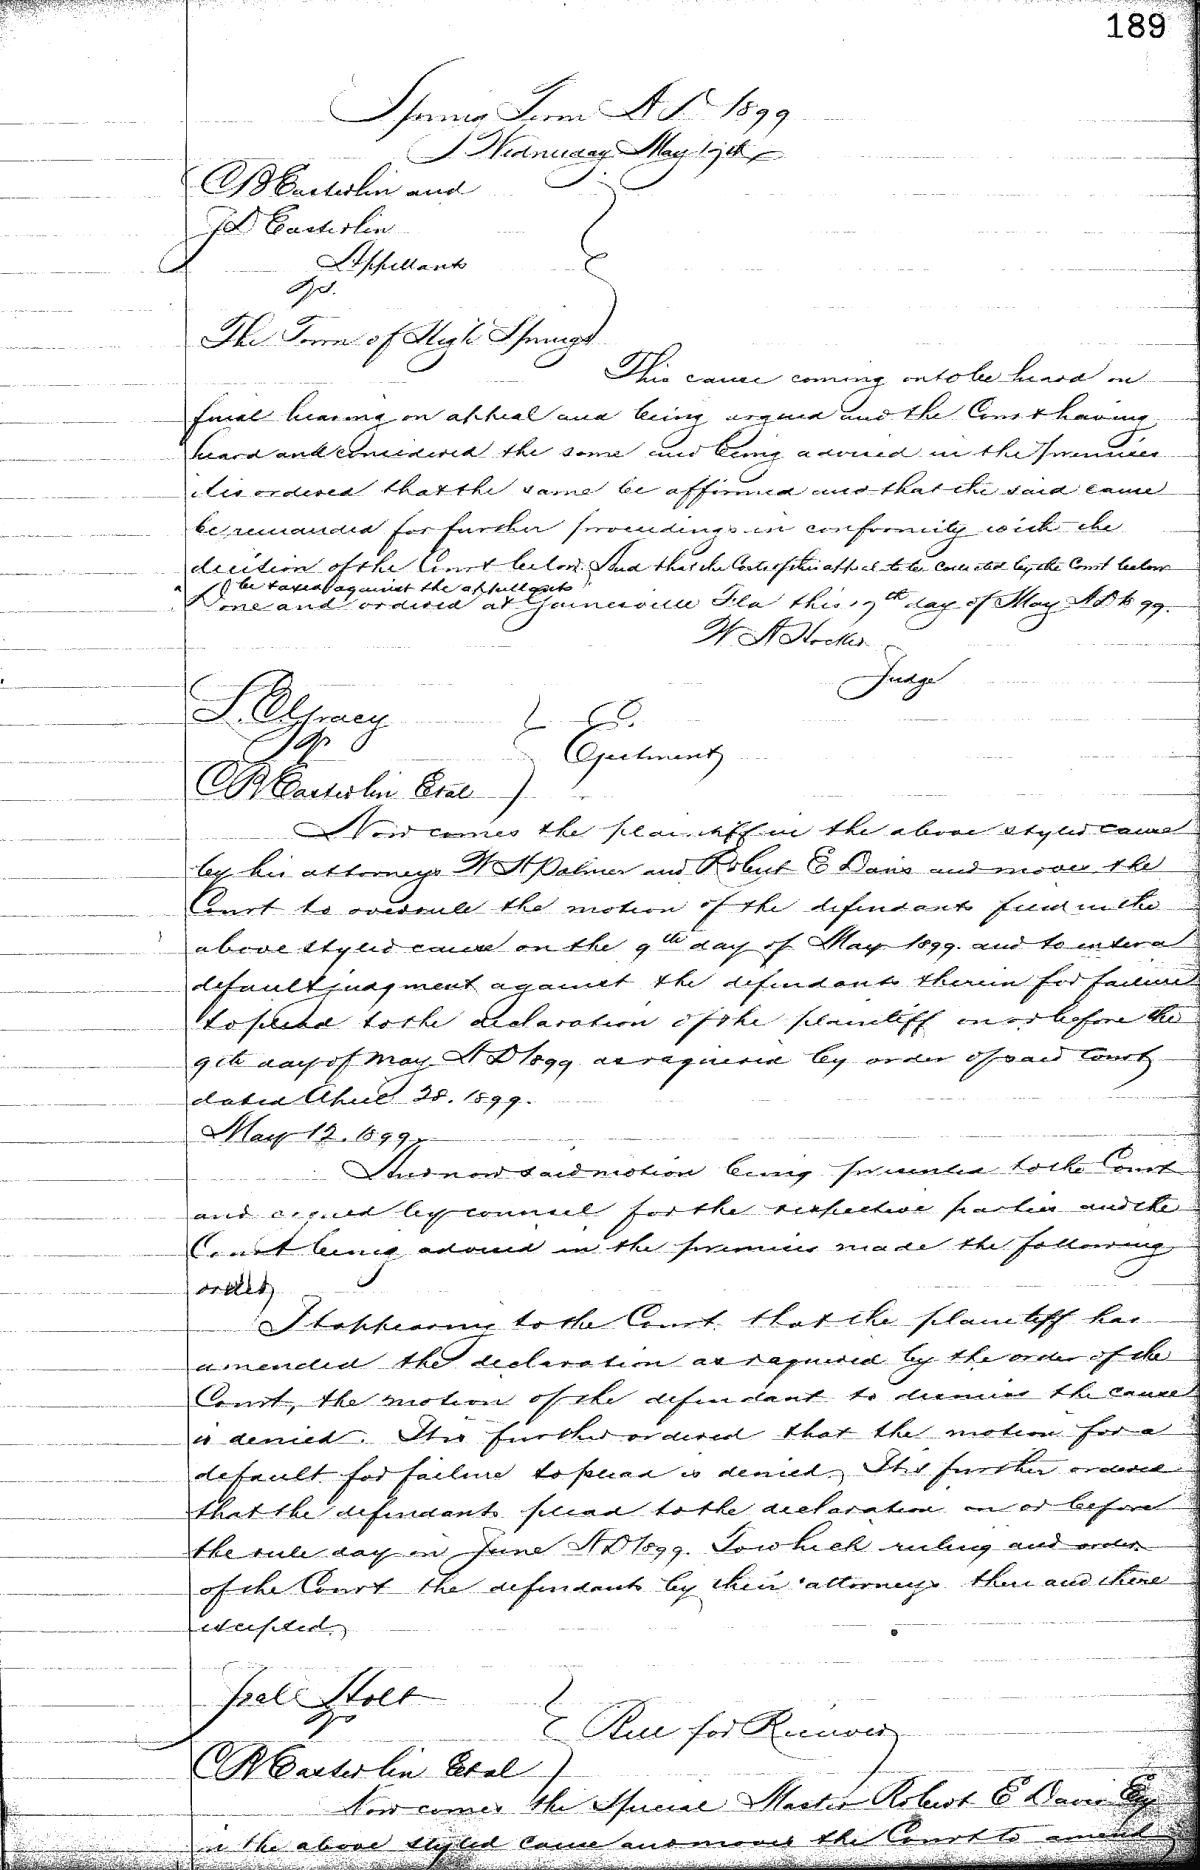 189
Spring Term A D 1899
Wednesday May 17th
C B Easterlin and
J D Easterlin
Appellants
vs.
The Town of High Springs
This cause coming on to be heard on
final hearing on appeal and being argued and the Court having
heard and considered the same and being advised in the premises
it is ordered that the same be affirmed and that the said cause
be remanded for further proceedings in conformity with the
decision of the Court below. And that the Costs of this appeal to be collected by the Court below
be taxed against the appellants
Done and ordered at Gainesville Fla this 17th day of May A D 1899.
W A Hocker
Judge
L. C. Gracy
vs
Ejectment
C B Easterlin Et al
Now comes the plaintiff in the above styled cause
by his attorneys W H Palmer and Robert E Davis and moves the
Court to overrule the motion of the defendants filed in the
above styled cause on the 9th day of May 1899. and to enter a
default judgment against the defendants therein for failure
to plead to the declaration of the plaintiff on or before the
9th day of May A D 1899 as required by order of said Court
dated April 28. 1899.
May 12. 1899.
And now said motion being presented to the Court
and argued by counsel for the respective parties and the
Court being advised in the premises made the following
order,
It appearing to the Court that the plaintiff has
amended the declaration as required by the order of the
Court, the motion of the defendant to dismiss the cause
is denied. It is further ordered that the motion for a
default for failure to plead is denied. It is further ordered
that the defendants plead to the declaration on or before
the rule day in June A D 1899. To which ruling and order
of the Court the defendants by their attorneys then and there
excepted.
Holt
vs
for
C B Easterlin Et al
Now comes the Special Master Robert E Davis Esq
in the above styled cause and moves the Court to amend